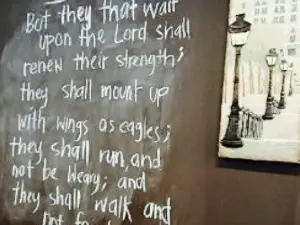 But they that wait
upon the Lord shall
renew their strength;
they shall mount up
with wings as eagles;
they shall run, and
not be weary; and
they shall walk and
not